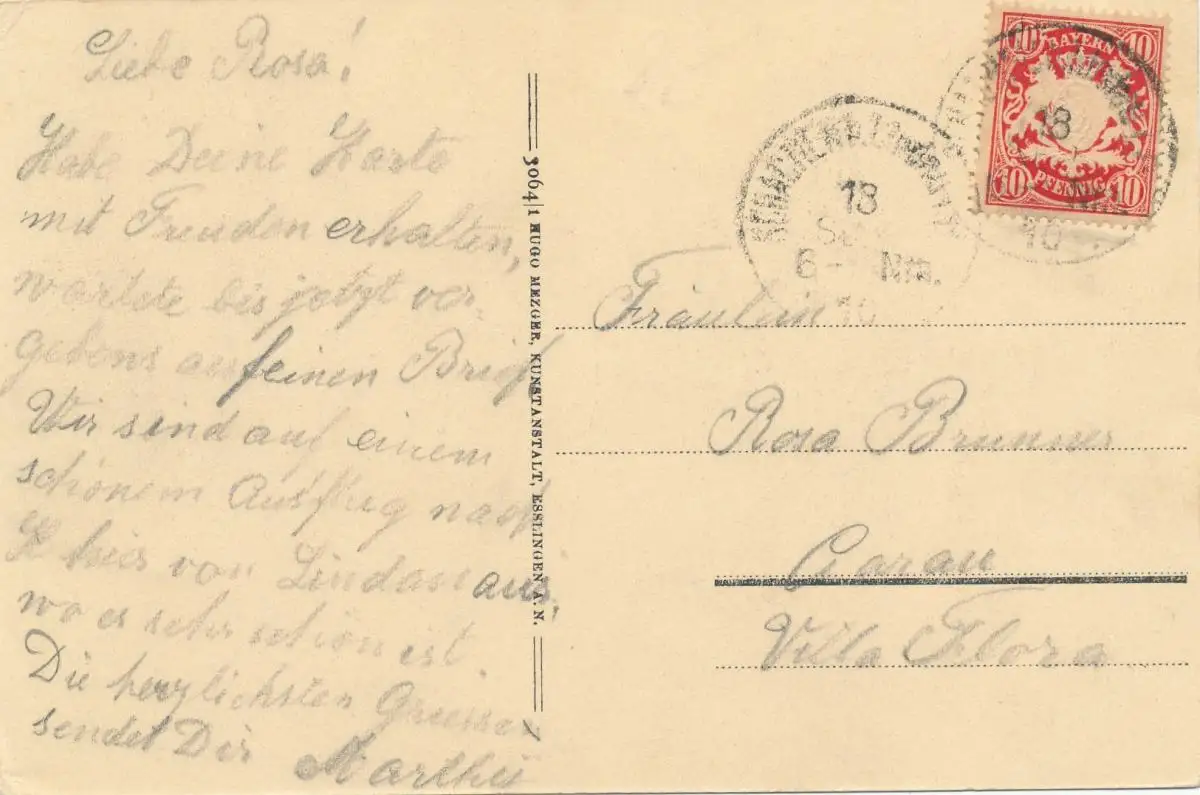 Liebe Rosa!
Habe Deine Karte
mit Freuden erhalten,
wartete bis jetzt ver-
gebens auf einen Brief
Wir sind auf einem
schönem Ausflug nach
hier von Lindau aus,
wo es sehr schön ist.
Die herzlichsten Grüsse
sendet Dir
30641 HUGO MEZGER, KUNSTANSTALT, ESSLINGEN A. N.
10 BAYERN 10
10 PFENNIG 10
18
10
18
6- Nm.
10
Fräulein
Rosa Brunner
Villa Flora